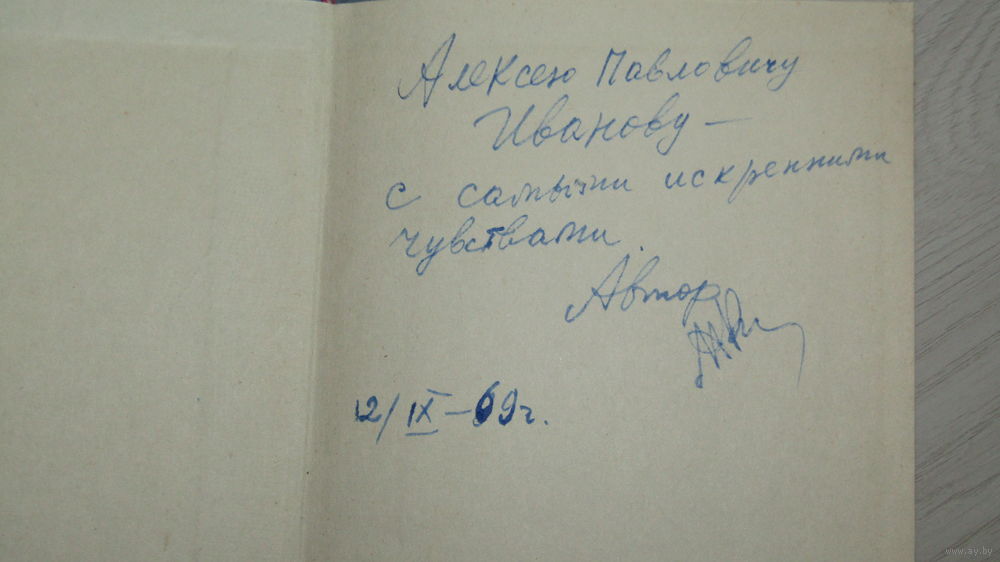 Алексею Павловичу
Иванову —
с самыми искренними
чувствами.
Автор
2/IX — 69г.
www.ay.by